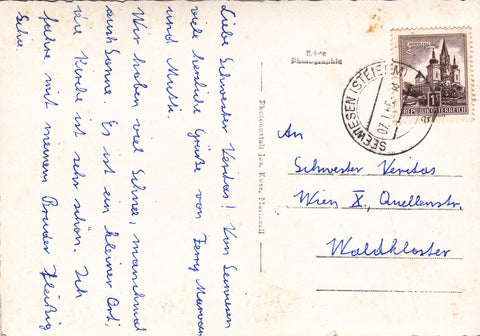 Liebe Schwester Veritas! Von Seewiesen
viele herzliche Grüße von Ferry
und Mutti.
Wir haben viel Schnee, manchmal
auch Sonne. Es ist ein kleiner Ort,
die Kirche ist sehr schön. Ich
fahre mit meinem Bruder fleißig
Schi.
Photoanstalt Jos. Kuss, Mariazell
Echte
Photographie
SEEWIESEN (STEIERM)
REPUBLIK ÖSTERREICH
An
Schwester Veritas
Wien X., Quellenstr.
Waldkloster